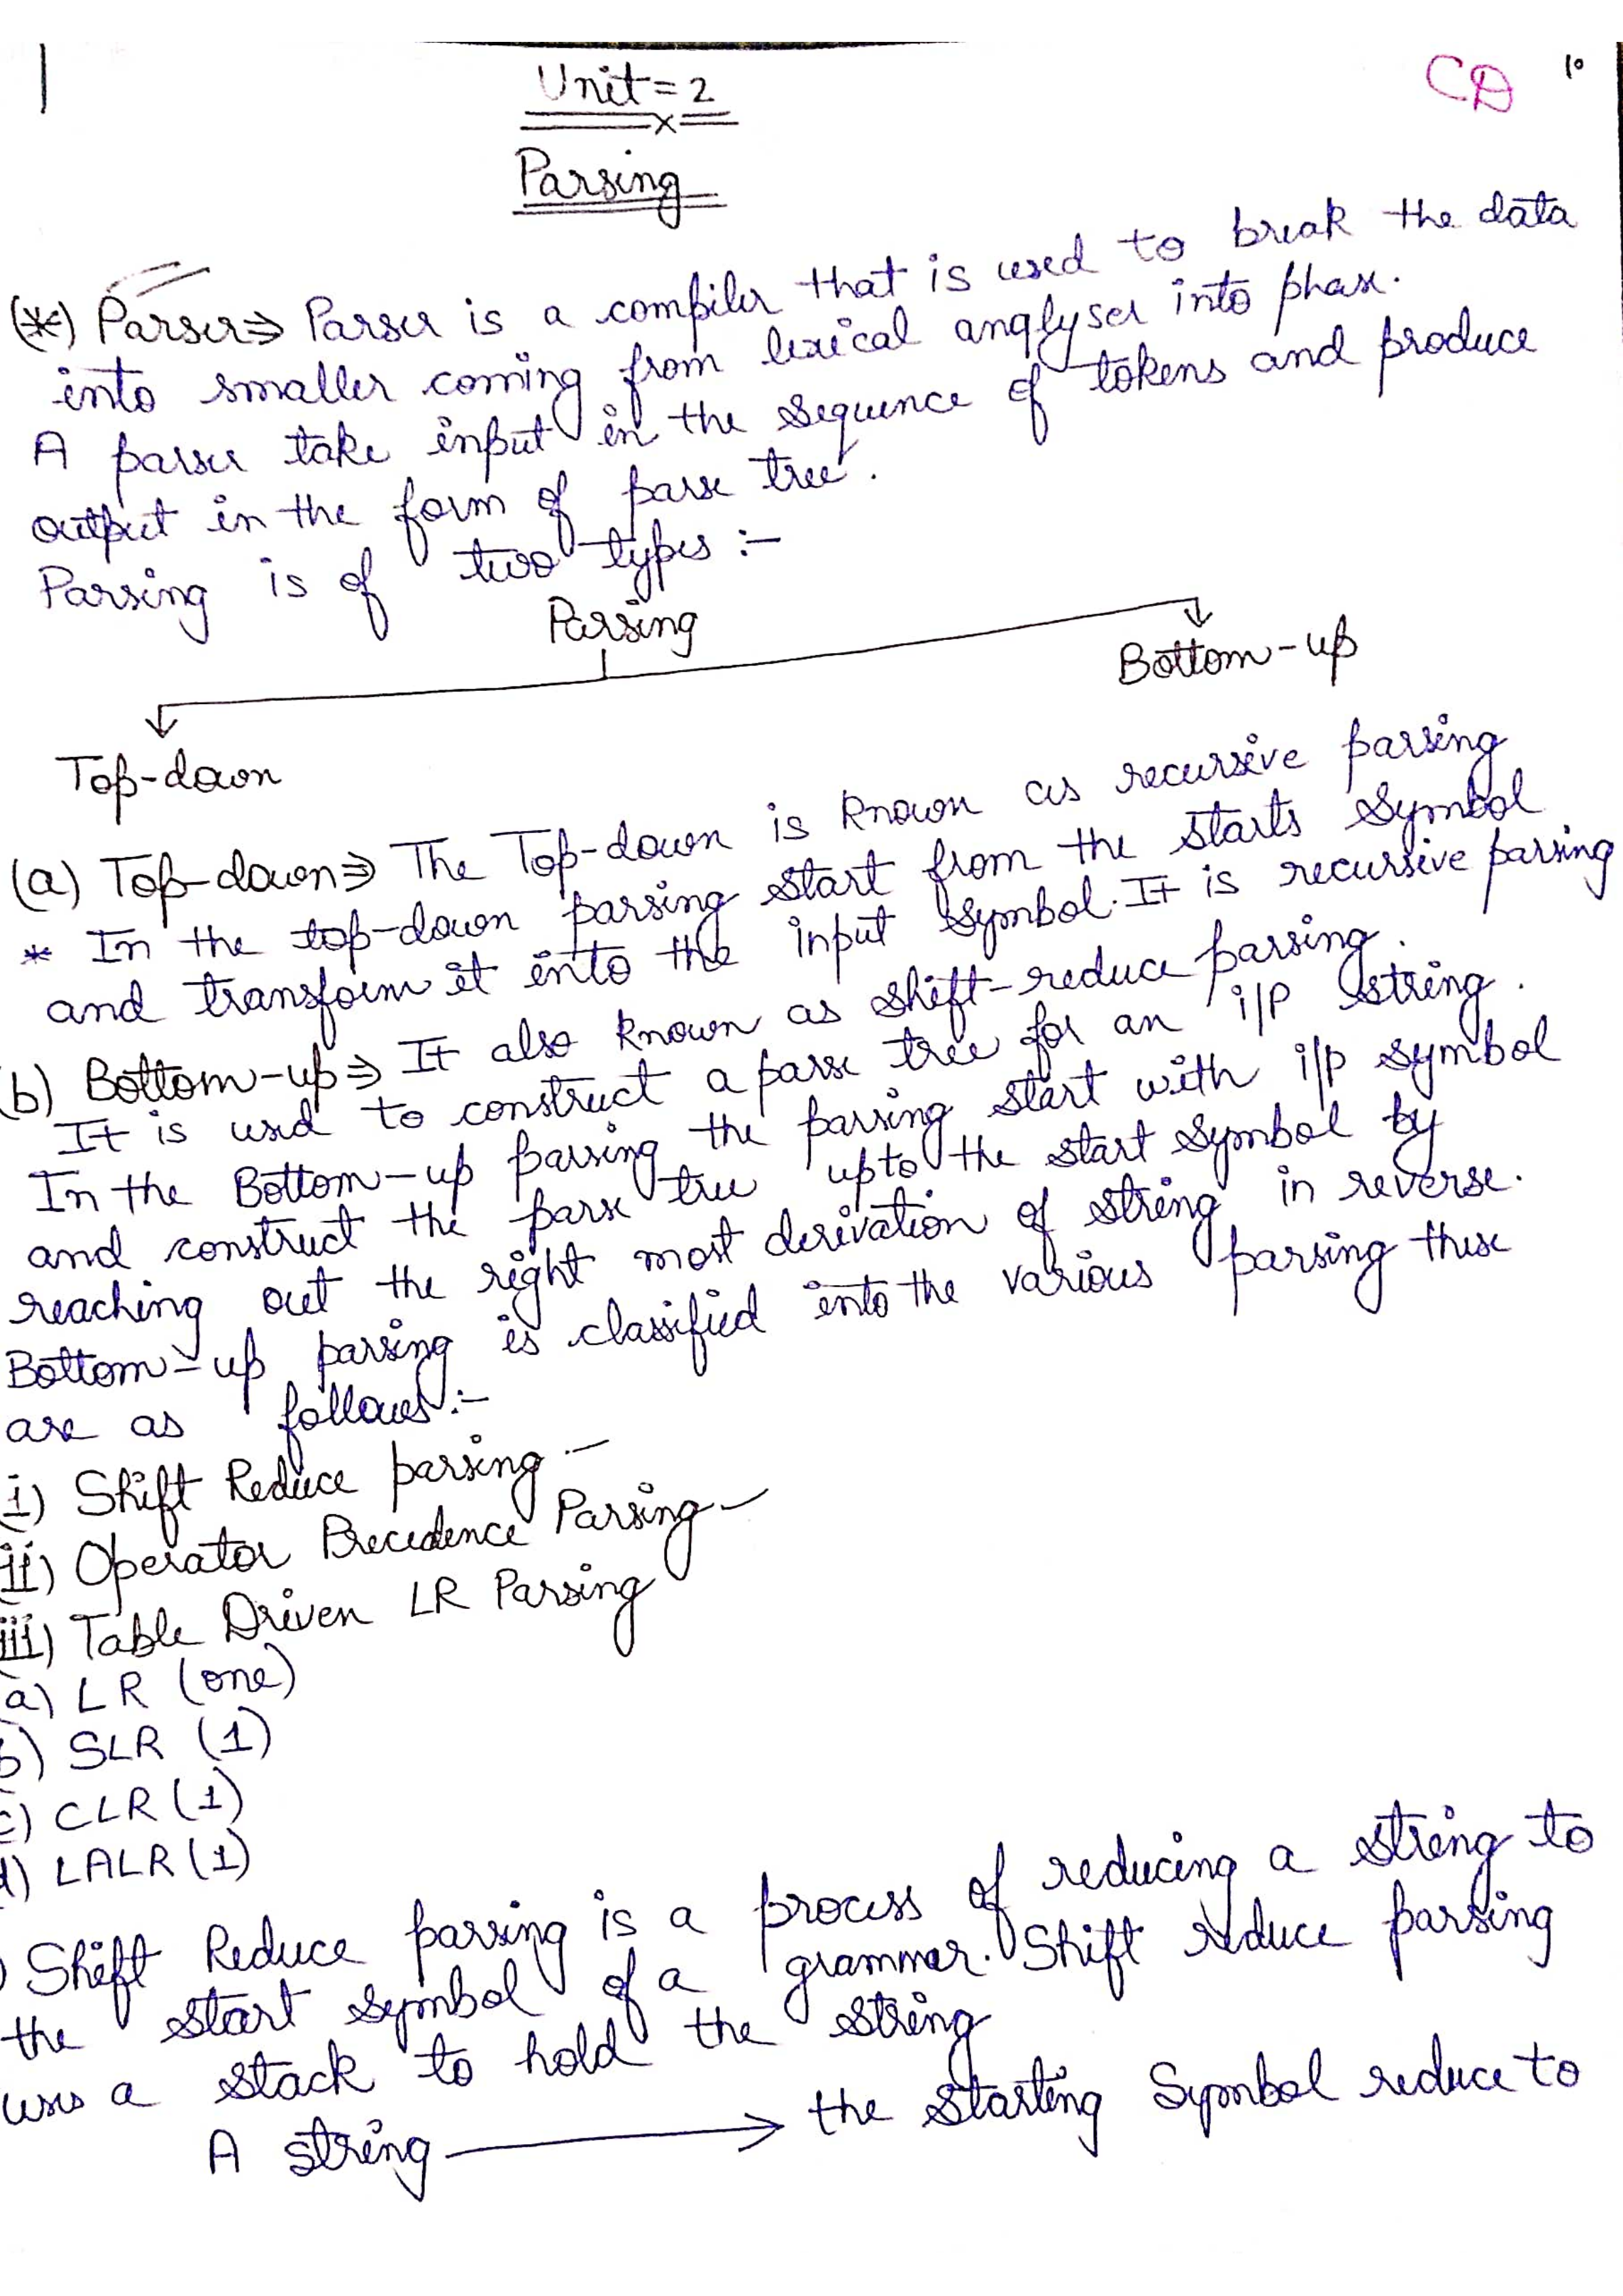 CD 10
Unit = 2
Parsing
(*) Parser ⇒ Parser is a compiler that is used to break the data
into smaller coming from lexical anqlyser into phase.
A parser take input in the sequence of tokens and produce
output in the form of parse tree.
Parsing is of two types :-
Parsing
Bottom-up
Top-down
(a) Top-down ⇒ The Top-down is known as recursive parsing
* In the top-down parsing start from the starts symbol
and transform it into the input symbol. It is recursive parsing
(b) Bottom-up ⇒ It also known as shift-reduce parsing.
It is used to construct a parse tree for an i/p string.
In the Bottom-up parsing the parsing start with i/p symbol
and construct the parse tree upto the start symbol by
reaching out the right most derivation of string in reverse.
Bottom-up parsing is classified into the various parsing these
are as follows :-
i) Shift Reduce parsing –
ii) Operator Precedence Parsing –
iii) Table Driven LR Parsing
a) LR (one)
b) SLR (1)
c) CLR (1)
d) LALR (1)
) Shift Reduce parsing is a process of reducing a string to
the start symbol of a grammar. Shift reduce parsing
uses a stack to hold the string
A string → the starting Symbol reduce to